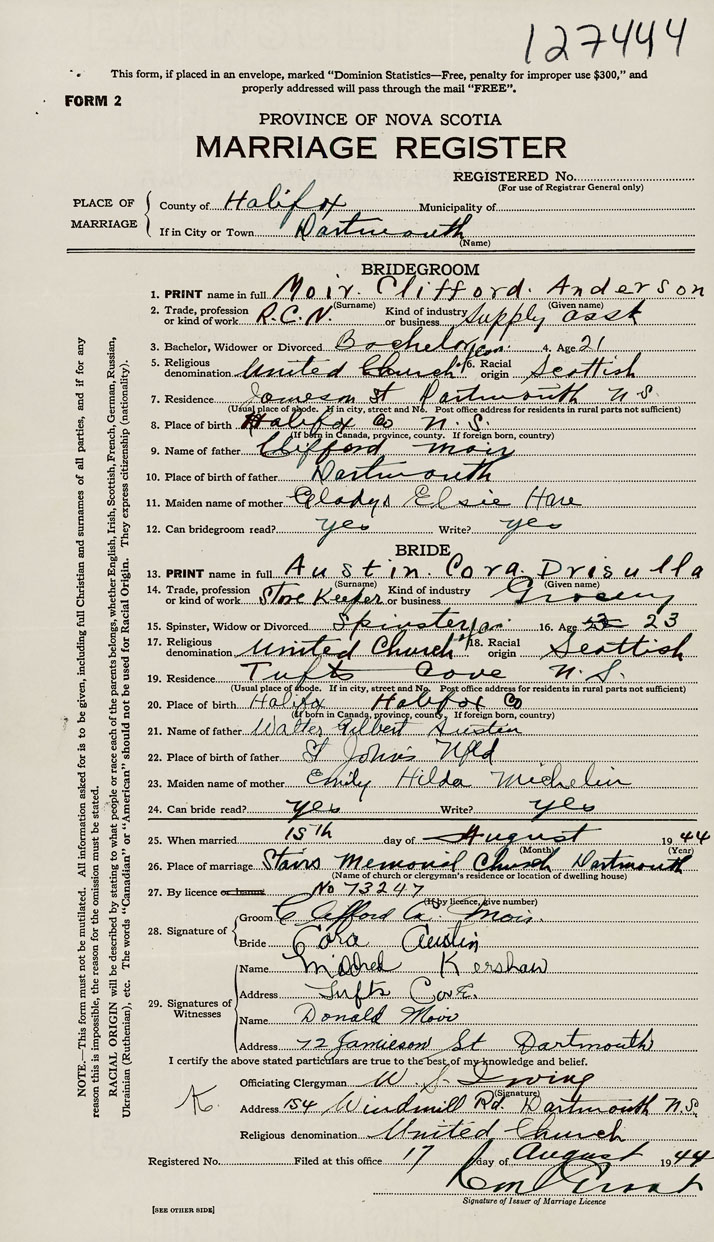 127444
This form, if placed in an envelope, marked "Dominion Statistics—Free, penalty for improper use $300," and
properly addressed will pass through the mail "FREE".
FORM 2
PROVINCE OF NOVA SCOTIA
MARRIAGE REGISTER
REGISTERED No.
(For use of Registrar General only)
PLACE OF MARRIAGE
County of Halifax Municipality of
If in City or Town Dartmouth
(Name)
BRIDEGROOM
1. PRINT name in full Moir. Clifford. Anderson
(Surname) (Given name)
2. Trade, profession or kind of work R.C.N. Kind of industry or business Supply asst
3. Bachelor, Widower or Divorced Bachelor 4. Age 21
5. Religious denomination United Church 6. Racial origin Scottish
7. Residence Jameson St Dartmouth N.S.
(Usual place of abode. If in city, street and No. Post office address for residents in rural parts not sufficient)
8. Place of birth Halifax Co N.S.
(If born in Canada, province, county. If foreign born, country)
9. Name of father Clifford Moir
10. Place of birth of father Dartmouth
11. Maiden name of mother Gladys Elsie Hare
12. Can bridegroom read? yes Write? yes
BRIDE
13. PRINT name in full Austin. Cora. Drisulla
(Surname) (Given name)
14. Trade, profession or kind of work Store Keeper Kind of industry or business Grocery
15. Spinster, Widow or Divorced Spinster 16. Age 23
17. Religious denomination United Church 18. Racial origin Scottish
19. Residence Tufts Cove N.S.
(Usual place of abode. If in city, street and No. Post office address for residents in rural parts not sufficient)
20. Place of birth Halifax Halifax Co
(If born in Canada, province, county. If foreign born, country)
21. Name of father Walter Gilbert Austin
22. Place of birth of father St John's Nfld
23. Maiden name of mother Emily Hilda Michelin
24. Can bride read? yes Write? yes
25. When married 15th day of August 1944
(Month) (Year)
26. Place of marriage Stairs Memorial Church Dartmouth
(Name of church or clergyman's residence or location of dwelling house)
27. By licence or banns No 73247
(If by licence, give number)
28. Signature of
Groom Clifford A. Moir.
Bride Cora Austin
29. Signatures of Witnesses
Name Mildred Kershaw
Address Tufts Cove.
Name Donald Moir
Address 72 Jamieson St Dartmouth
I certify the above stated particulars are true to the best of my knowledge and belief.
Officiating Clergyman W. J. Irving
(Signature)
K. Address 154 Windmill Rd. Dartmouth N.S.
Religious denomination United Church
Registered No. Filed at this office 17 day of August 1944
Signature of Issuer of Marriage Licence
[SEE OTHER SIDE]
NOTE.—This form must not be mutilated. All information asked for is to be given, including full Christian and surnames of all parties, and if for any
reason this is impossible, the reason for the omission must be stated.
RACIAL ORIGIN will be described by stating to what people or race each of the parents belongs, whether English, Irish, Scottish, French, German, Russian,
Ukrainian (Ruthenian), etc. The words "Canadian" or "American" should not be used for Racial Origin. They express citizenship (nationality).